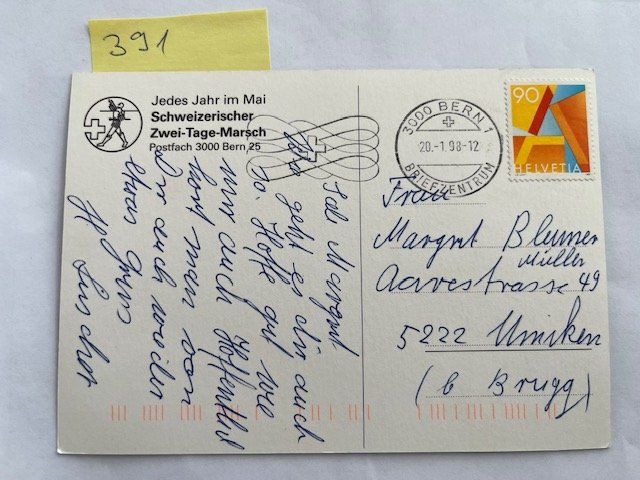 391
Jedes Jahr im Mai
Schweizerischer
Zwei-Tage-Marsch
Postfach 3000 Bern 25
3000 BERN 1
20.-1.98-12
BRIEFZENTRUM
90
A
HELVETIA
Margrit
geht es dir auch
so. Hoffe gut wie
mir auch Hoffentlich
hört man von
Dir auch wieder
etwas Gruss
Frau
Margrit Blumer
Müller
Aarestrasse 49
5222 Umiken
(b Brugg)